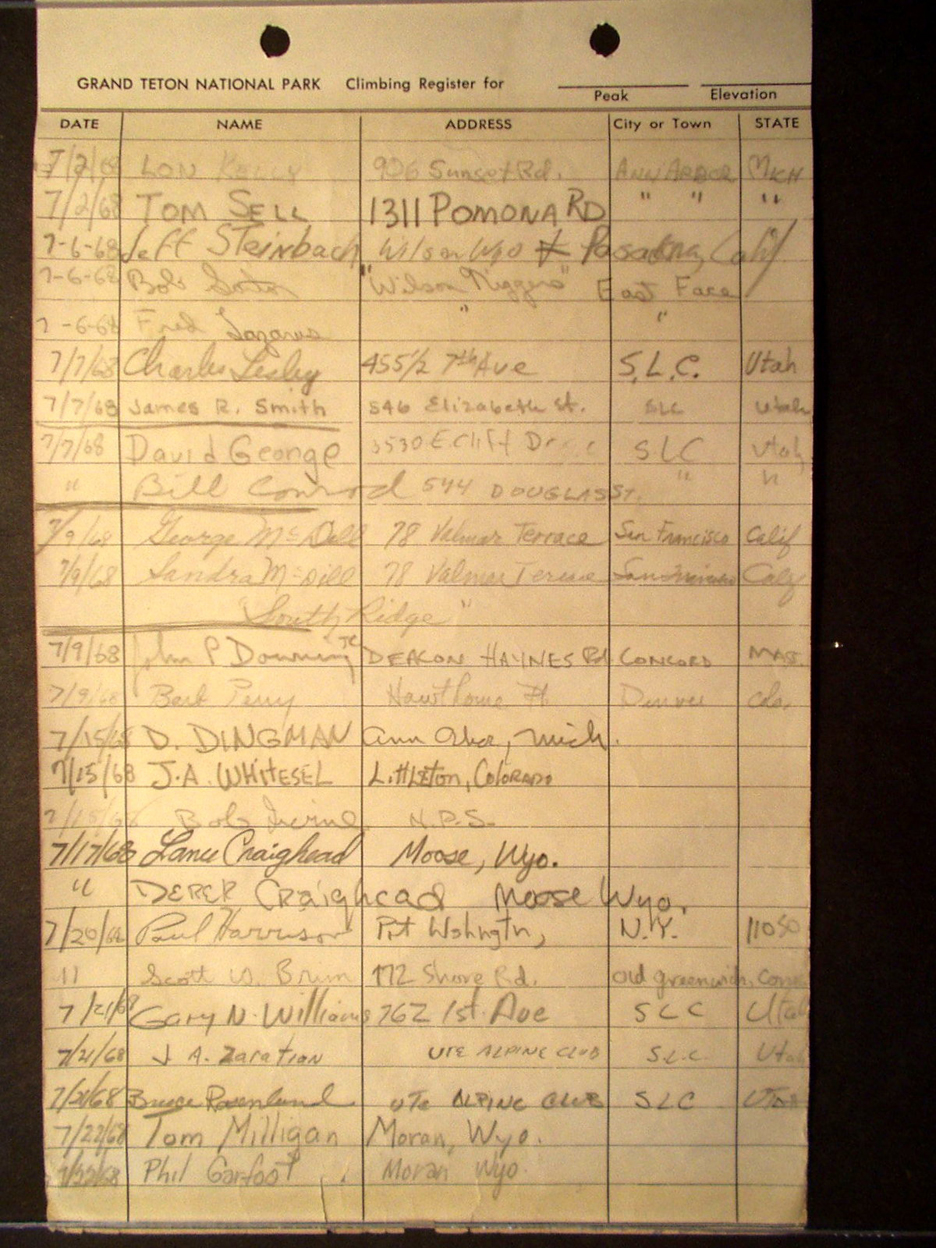 GRAND TETON NATIONAL PARK Climbing Register for
Peak Elevation
DATE NAME ADDRESS City or Town STATE
7/2/68 LON KELLY 926 Sunset Rd. ANN ARBOR MICH
7/2/68 TOM SELL 1311 POMONA RD " " "
7-6-68 Jeff Steinbach Wilson Wyo & Pasadena, Calif
7-6-68 Bob "Wilson Niggers" East Face
7-6-68 Fred Lazarus " "
7/7/68 Charles Lesley 455 1/2 7th Ave S.L.C. Utah
7/7/68 James R. Smith 546 Elizabeth St. SLC Utah
7/7/68 David George 3530 E. Cliff Dr SLC Utah
" Bill Conrod 544 DOUGLAS ST. " "
7/9/68 George McDill 78 Valmar Terrace San Francisco Calif
7/9/68 Sandra McDill 78 Valmar Terrace San Francisco Calif
"South Ridge"
7/9/68 John P Downing Jr DEACON HAYNES Rd CONCORD MAS.
7/9/68 Barb Perry Hawthorne Pl Denver Colo.
7/15/68 D. DINGMAN Ann Arbor, Mich.
7/15/68 J.A. WHITESEL LITTLETON, COLORADO
7/15/68 Bob Irvine N.P.S.
7/17/68 Lance Craighead Moose, Wyo.
" DEREK Craighead Moose Wyo.
7/20/68 Paul Harrison Prt Wshngtn, N.Y. 11050
11 Scott W. Brim 172 Shore Rd. Old greenwich, Conn
7/21/68 Gary N. Williams 762 1st Ave SLC Utah
7/21/68 J A. Zaration UTE ALPINE CLUB S.L.C. Utah
7/21/68 Bruce Rosenlund UTE ALPINE CLUB SLC UTAH
7/22/68 Tom Milligan Moran, Wyo.
7/22/68 Phil Garfoot Moran Wyo